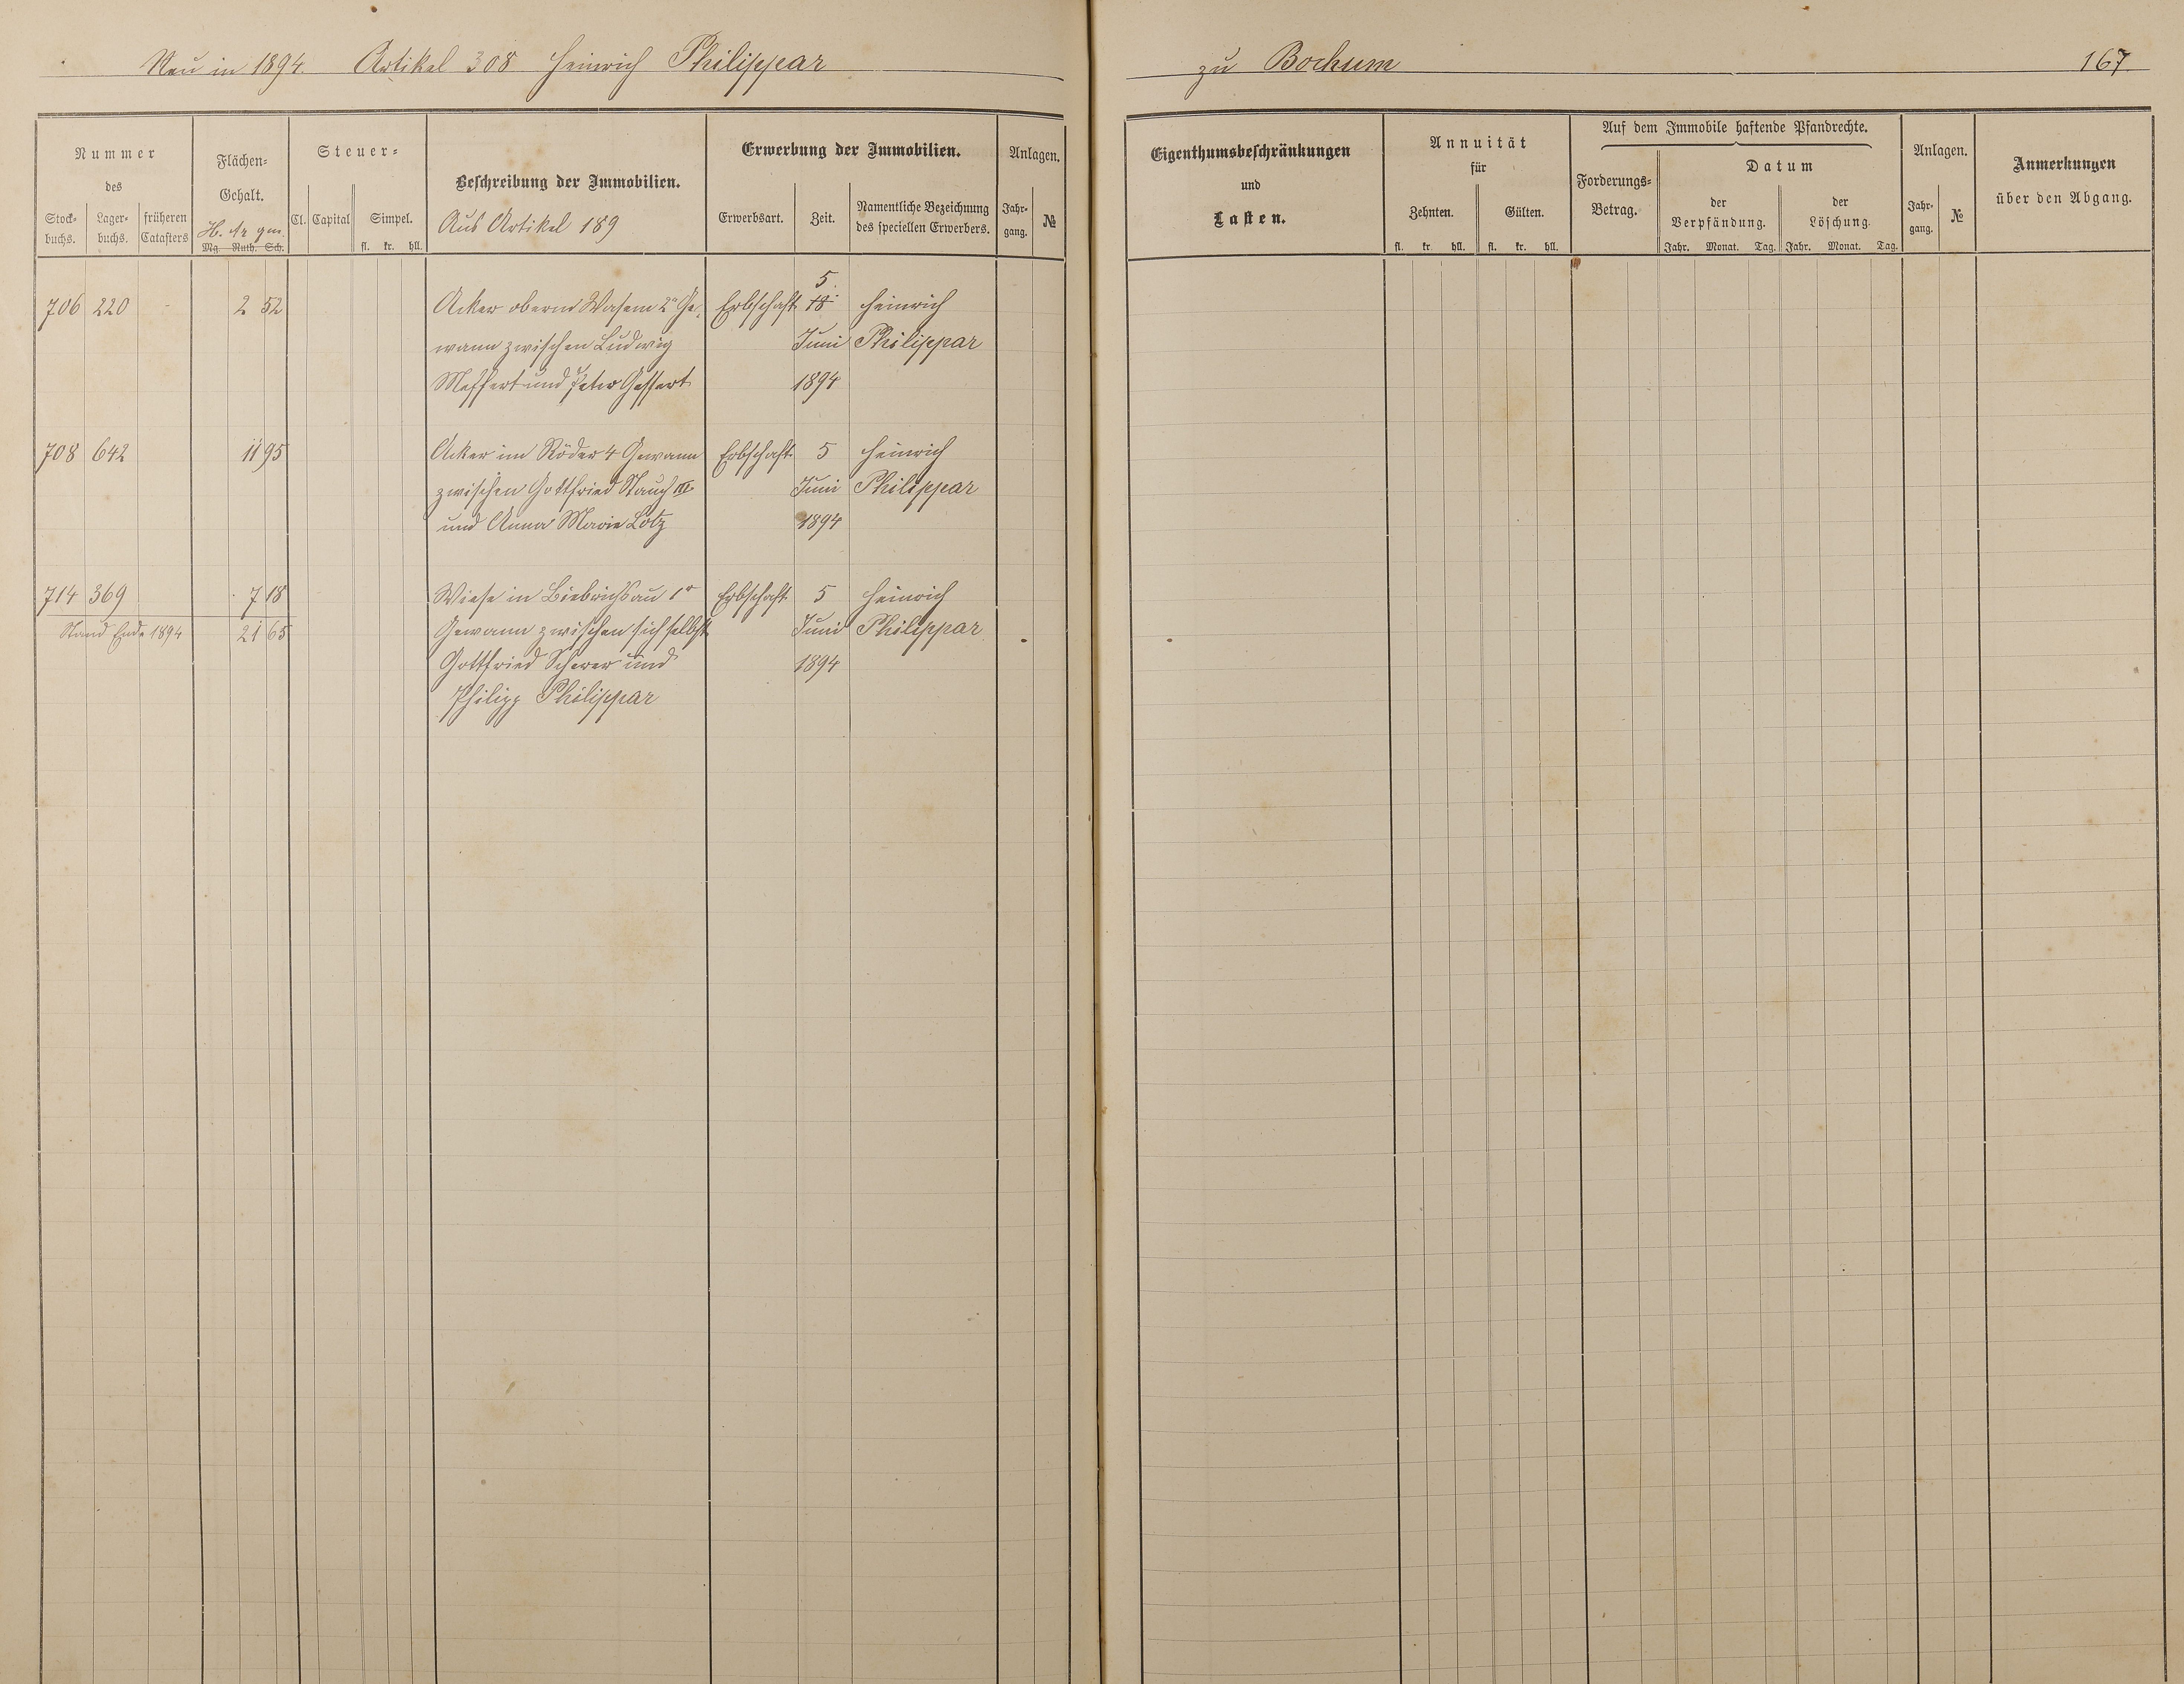 Neu in 1894. Artikel 308 Heinrich Philippar
zu Bochum 167.
Nummer
des
Stock-
buchs.
Lager-
buchs.
früheren
Catasters
Flächen-
Gehalt.
H. Ar qm.
Mg. Ruth. Sch.
Steuer-
Cl. Capital Simpel.
fl. kr. hll.
Beschreibung der Immobilien.
Aus Artikel 189
Erwerbung der Immobilien.
Erwerbsart. Zeit.
Namentliche Bezeichnung
des speciellen Erwerbers.
Anlagen.
Jahr-
gang.
№
Eigenthumsbeschränkungen
und
Lasten.
Annuität
für
Zehnten. Gülten.
fl. kr. hll. fl. kr. hll.
Auf dem Immobile haftende Pfandrechte.
Forderungs-
Betrag.
Datum
der
Verpfändung.
der
Löschung.
Jahr. Monat. Tag. Jahr. Monat. Tag.
Anlagen.
Jahr-
gang.
№
Anmerkungen
über den Abgang.
5.
706 220 - 2 52 Acker oberm Wasem 2r Ge- Erbschaft 18 Heinrich
wann zwischen Ludwig Juni Philippar
Meffert und Peter Geffert 1894
708 642 11 95 Acker im Röder 4 Gewann Erbschaft 5 Heinrich
zwischen Gottfried Stauch III Juni Philippar
und Anna Marie Lotz 1894
714 369 7 18 Wiese in Biebrichsau 1r Erbschaft 5 Heinrich
Stand Ende 1894 21 65 Gewann zwischen sich selbst Juni Philippar
Gottfried Scherer und 1894
Philipp Philippar